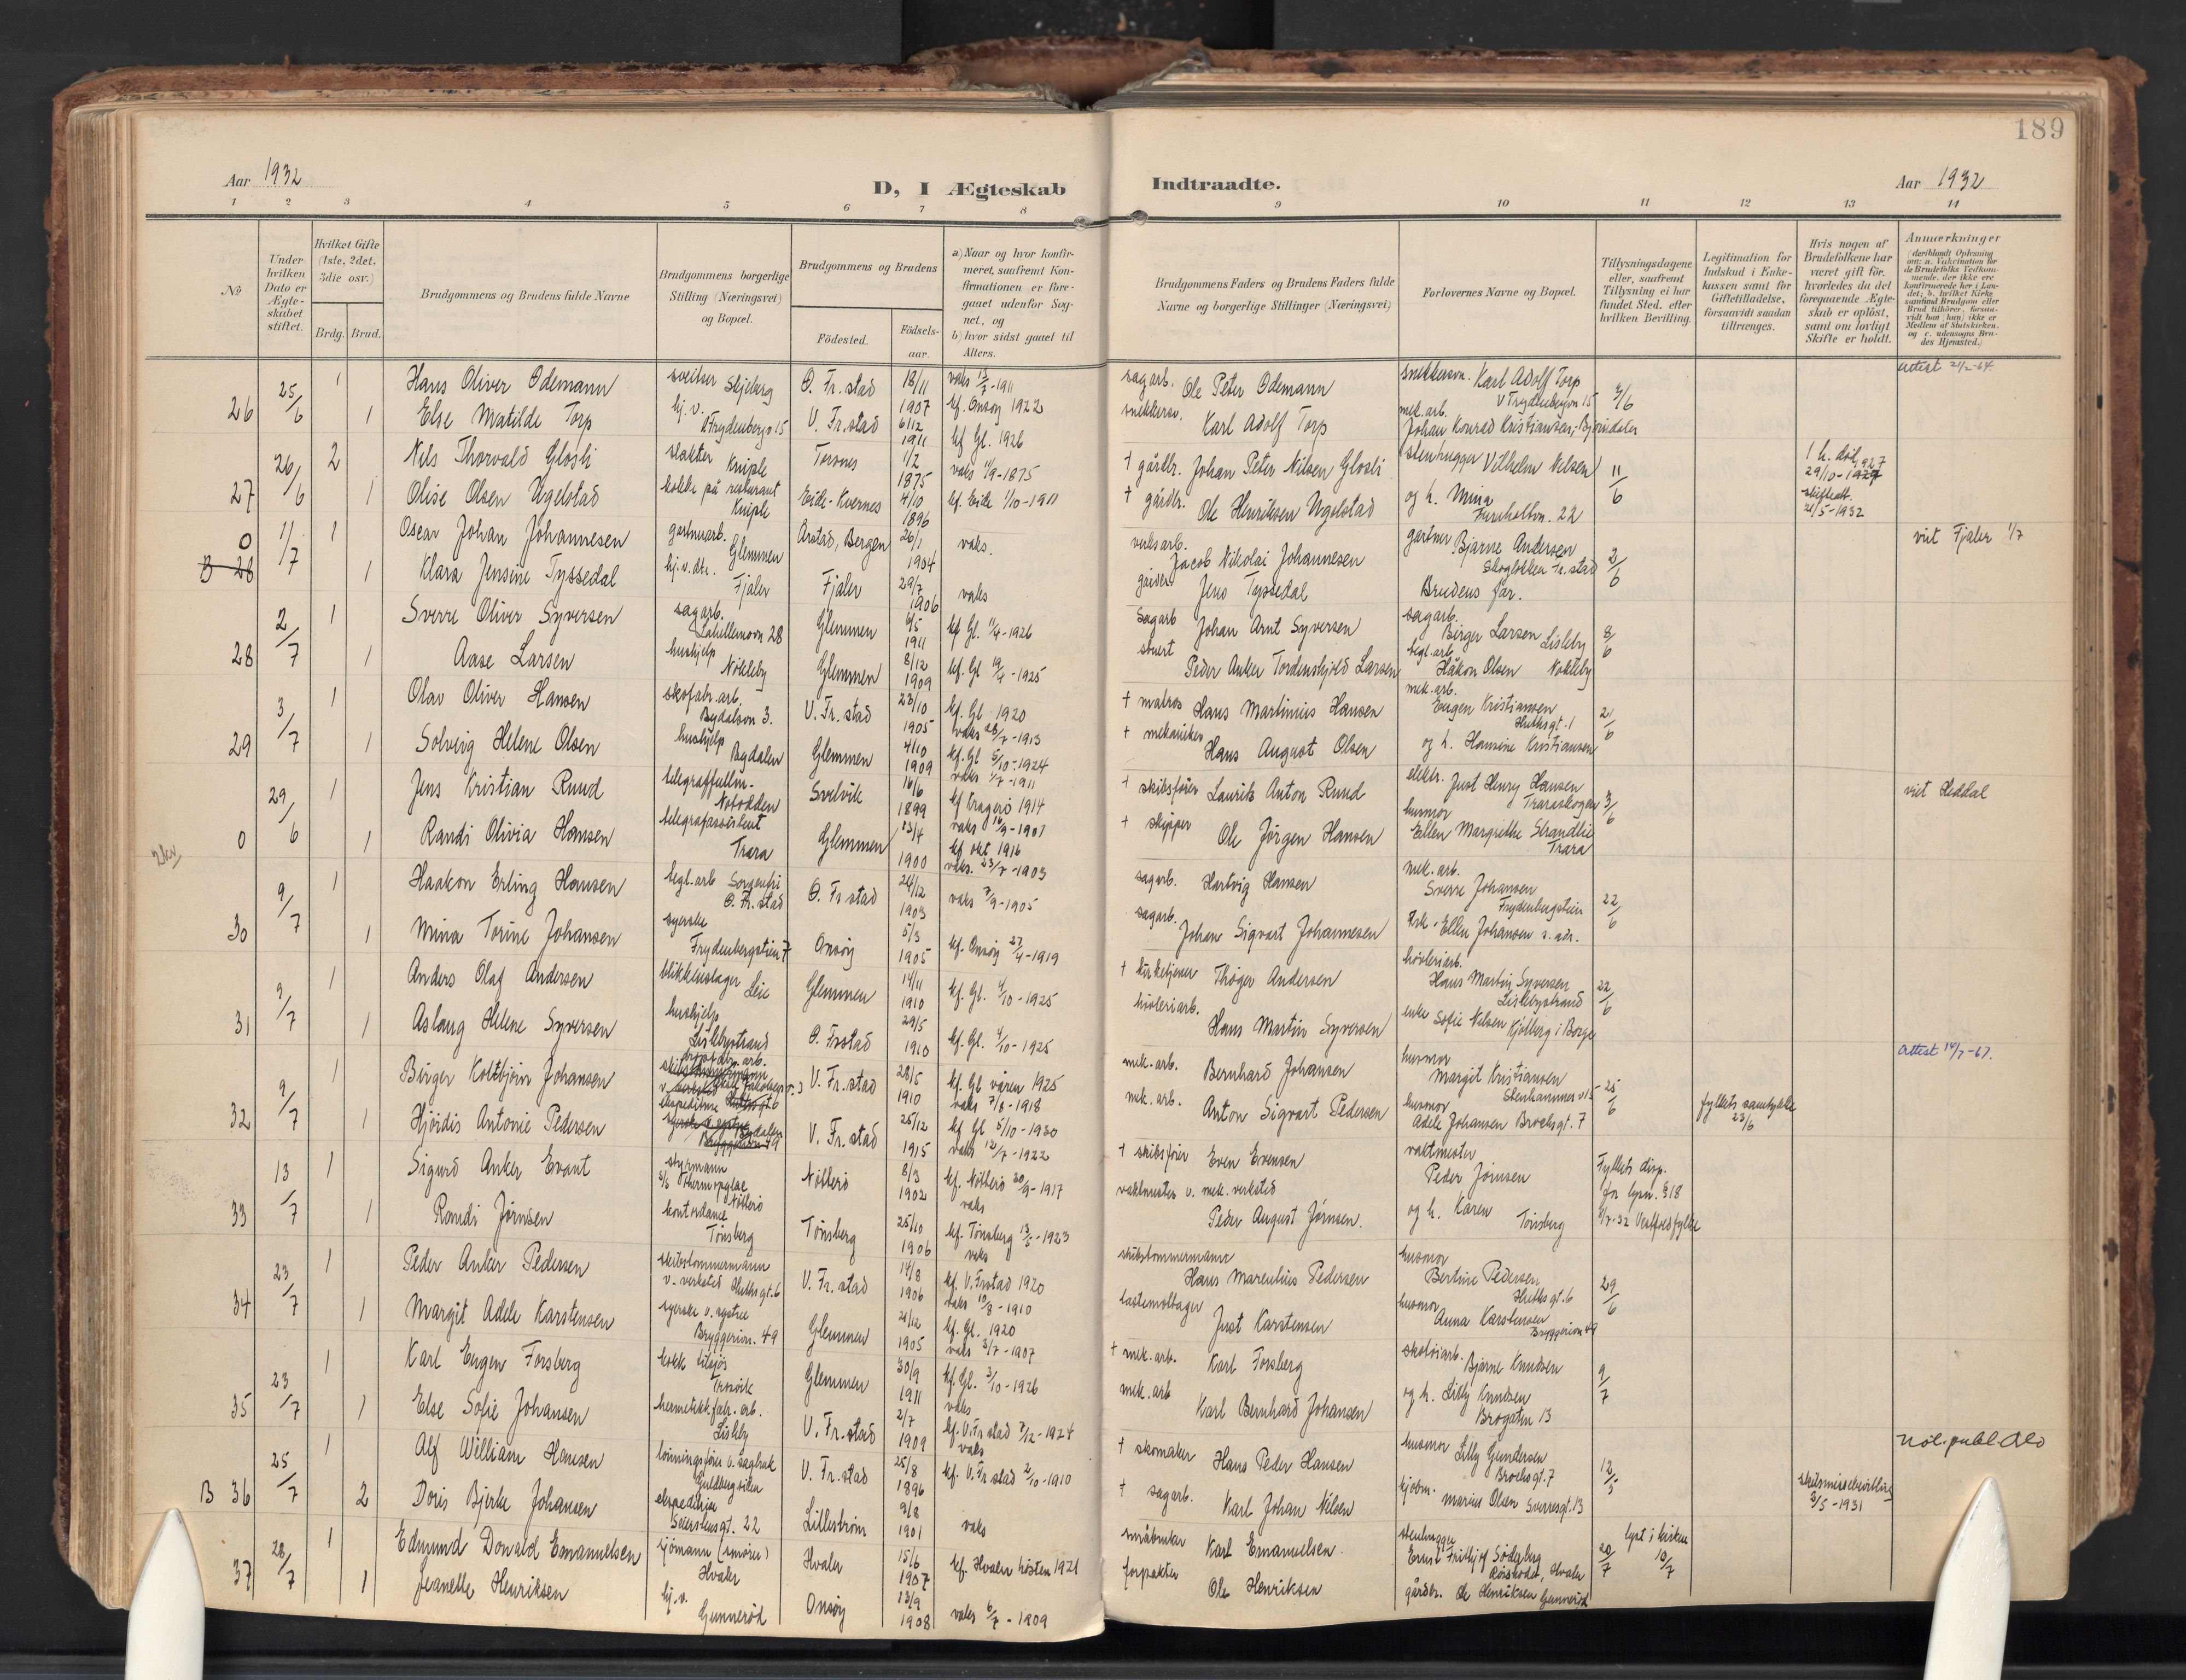 189
Aar 1932
D, I Ægteskab Indtraadte.
Aar 1932
1 2 3 4 5 6 7 8 9 10 11 12 13 14
No.
Under hvilken Dato er Ægteskabet stiftet.
Hvilket Gifte (1ste, 2det, 3die osv.)
Brdg. Brud.
Brudgommens og Brudens fulde Navne
Brudgommens borgerlige Stilling (Næringsvei) og Bopæl.
Brudgommens og Brudens
Fødested.
Fødsels-aar.
a) Naar og hvor konfirmeret, saafremt Konfirmationen er foregaaet udenfor Sognet, og
b) hvor sidst gaaet til Alters.
Brudgommens Faders og Brudens Faders fulde Navne og borgerlige Stillinger (Næringsvei)
Forlovernes Navne og Bopæl.
Tillysningsdagene eller, saafremt Tillysning ei har fundet Sted, efter hvilken Bevilling.
Legitimation for Indskud i Enkekassen samt for Giftetilladelse, forsaavidt saadan tiltrænges.
Hvis nogen af Brudefolkene har været gift før, hvorledes da det foregaaende Ægteskab er opløst, samt om lovligt Skifte er holdt.
Anmærkninger
(deriblandt Oplysning om: a. Vakcination for de Brudefolks Vedkommende, der ikke ere konfirmerede her i Landet; b. hvilket Kirkesamfund Brudgom eller Brud tilhører, forsaavidt han (hun) ikke er Medlem af Statskirken, og c. udensogns Brudes Hjemsted.)
26 25/6 1 Hans Oliver Odemann sveitser Skjeberg Ø. Fr.stad 18/11 1907 vaks 13/7-1911 kf. Onsøy 1922 sagarb. Ole Peter Odemann Karl Adolf Torp V Frydenbergvn 15 2/6 attest 21/2-64.
1 Else Matilde Torp hj.v. Frydenbergv 15 V. Fr.stad 6/12 1911 kf Gl. 1926 snekkersv. Karl Adolf Torp mek.arb. Johan Konrad Kristiansen, Bjørndalen
27 26/6 2 Nils Thorvald Glosli slakter Kniple Torsnes 1/2 1875 vaks 11/9-1875 † gårdbr. Johan Peter Nilsen Glosli stenhugger Vilhelm Nilsen 11/6
1 Olise Olsen Ugelstad kokke på resturant Kniple Eide-Kvernes 4/10 1896 kf. Eide 1/10-1911 † gårdbr. Ole Henriksen Ugelstad og h. Mina Furuholtvn. 22 21/5-1932
0 B 28 11/7 1 Oscar Johan Johannesen gartnerarb. Glemmen Årstad, Bergen 26/1 1904 vaks. Jacob Nikolai Johannesen gartner Bjarne Andersen Skogløkken Fr.stad 2/6 viet Fjaler 1/7
1 Klara Jensine Tyssedal hj.v. Fjaler Fjaler 29/7 1906 vaks gårdbr. Jens Tyssedal Brudens far.
28 2/7 1 Sverre Oliver Syversen sagarb. 28 Glemmen 6/5 1911 kf Gl. 11/4-1926 Sagarb Johan Arnt Syversen sagarb. Birger Larsen Lisleby 8/6
1 Aase Larsen hushjelp Nøkleby Glemmen 8/12 1909 kf. Gl 19/4-1925 stuert Peder Anker Tordenskjold Larsen tegl.arb Håkon Olsen Nøkleby
29 3/7 1 Olav Oliver Hansen skofabr.arb. Bydalsvn 3. V. Fr.stad 23/10 1905 kf. Gl. 1920 vaks 28/7-1913 † matros Hans Martinius Hansen mek.arb. Eugen Kristiansen Huthsgt. 1 2/6
1 Solveig Helene Olsen hushjelp Bydalen Glemmen 4/10 1909 kf. Gl 5/10-1924 vaks 4/7-1911 † mekaniker Hans August Olsen og h. Hansine Kristiansen
0 29/6 1 Jens Kristian Ruud Notodden Svelvik 16/6 1899 kf Kragerø 1914 vaks 14/9-1901 † skibsfører Laurits Anton Ruud elektr. Just Henry Hansen Traraskogen 3/6 viet Heddal
1 Randi Olivia Hansen telegrafassistent Trara Glemmen 23/4 1900 kf okt 1916 vaks. 23/7-1903 † skipper Ole Jørgen Hansen husmor Ellen Margrethe Strandlie Trara
30 9/7 1 Haakon Erling Hansen tegl.arb Sorgenfri Ø. Fr.stad Ø. Fr stad 24/12 1903 vaks 7/9-1905 sagarb. Hartvig Hansen mek.arb. Sverre Johansen Frydenbergstien 22/6
1 Mina Torine Johansen syerske Frydenbergstien 7 Onsøy 5/3 1905 kf. Onsøy 27/4-1919 sagarb. Johan Sigvart Johannesen Ellen Johansen s. adr.
31 9/7 1 Anders Olaf Andersen blikkenslager Leie Glemmen 14/11 1910 kf. Gl. 4/10-1925 † kirketjener Thøger Andersen høvleriarb. Hans Martin Syversen Lislebystrand 22/6
1 Aslaug Helene Syversen hushjelp Lislebystrand Ø. Frstad 29/5 1910 kf. Gl. 4/10-1925 høvleriarb. Hans Martin Syversen enke Sofie Nilsen Kjølberg i Borge
32 9/7 1 Birger Kolbjørn Johansen V. Fr.stad 28/5 1910 kf. Gl våren 1925 vaks 7/8-1918 mek.arb. Bernhard Johansen husmor Margit Kristiansen Stenhammerv 15 25/6 attest 14/7-67.
1 Hjørdis Antonie Pedersen ekspeditrise V. Fr.stad 25/12 1915 kf Gl 5/10-1930 vaks 12/7-1922 mek.arb. Anton Sigvart Pedersen husmor Adele Johansen Brochsgt. 7 fylkets samtykke 23/6
33 13/7 1 Sigurd Anker Evant styrmann s/s Thermopylæ Nøtterø Nøtterø 8/3 1902 kf. Nøtterø 30/9-1917 vaks † skibsfører Even Evensen vaktmester Peder Jørnsen Fylkets disp. for lysn. §18
1 Randi Jørnsen kontordame Tønsberg Tønsberg 25/10 1906 kf. Tønsberg 13/5-1923 vaks vaktmester v. mek. verksted Peder August Jørnsen. og h. Karen Tønsberg 1/7-32 Vestfold fylke
34 23/7 1 Peder Anker Pedersen skibstømmermann v. verksted Huthsgt. 6 V. Fr.stad 14/8 1906 kf. V. Frstad 1920 vaks 10/8-1910 skibstømmermann Hans Marenlius Pedersen husmor Bertine Pedersen Huthsgt. 6 29/6
1 Margit Adele Karstensen syerske v. systue Bryggeriv. 49 Glemmen 21/12 1905 kf. Gl. 1920 vaks 3/7-1907 lastemottager Just Karstensen husmor Anna Karstensen Bryggerivn 49
35 23/7 1 Karl Eugen Forsberg kokk tilsjøs Trosvik Glemmen 30/9 1911 kf. Gl. 3/10-1926 vaks † mek.arb. Karl Forsberg skotøiarb. Bjarne Knudsen 9/7
1 Else Sofie Johansen hermetikkfabr.arb. Lisleby V. Fr.stad 2/7 1909 kf. V. Fr stad 7/12-1924 vaks mek.arb Karl Bernhard Johansen og h. Lilly Knudsen Brogaten 13
B 36 25/7 1 Alf William Hansen V. Fr.stad 25/8 1896 kf. V. Fr stad 2/10-1910 † skomaker Hans Peder Hansen husmor Lilly Gundersen Brochsgt. 7 12/5
2 Doris Bjerke Johansen ekspeditrise Seierstensgt. 22 Lillestrøm 9/8 1901 vaks † sagarb. Karl Johan Nilsen kjøbm. Marius Olsen Sverresgt. 13 skilsmissebevilling 3/5-1931
37 28/7 1 Edmund Donald Emanuelsen sjømann (smører) Hvaler Hvaler 15/6 1907 kf. Hvaler høsten 1921 småbruker Karl Emanuelsen. stenhugger Ernst Frithjof Søderberg Hvaler 20/7 lyst i kirken 10/7
1 Jeanette Henriksen hj.v. Gunnerød Onsøy 13/9 1908 vaks 6/7-1909 forpakter Ole Henriksen gårdbr. Ole Henriksen Gunnerød